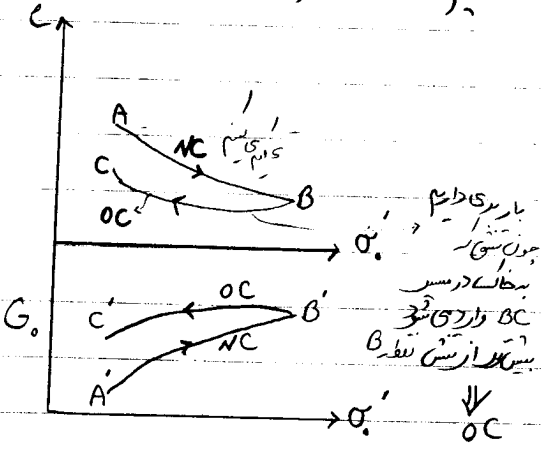 e
A
NC
C
B
OC
σ₀'
باربری داریم
چون تنشی که
به خاک در مسیر
BC وارد می شود
بیشتر از تنش نقطه B
⇓
OC
G₀
C'
OC
B'
NC
A'
σ₀'